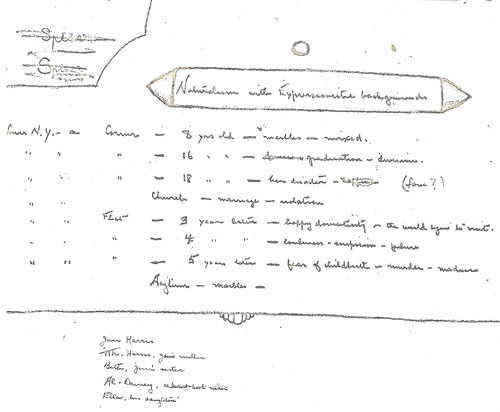 Naturalism with Expressionistic backgrounds
Lower N.Y. - a Corner — 8 yrs old — marbles — mixed.
" " " — 16 " " — graduation — division.
" " " — 18 " " — her disaster —
" " Church — marriage — isolation
" " Flat — 3 years later — happy domesticity — the world begins to
" " " — 4 " " — loneliness - suspicion - failure
" " " — 5 years later — fear of childbirth — murder — madness
Asylum — marbles —
Jim Harris
Mrs. Harris, Jim's mother
Jim's sister
Al. Downey,
Ella, his daughter